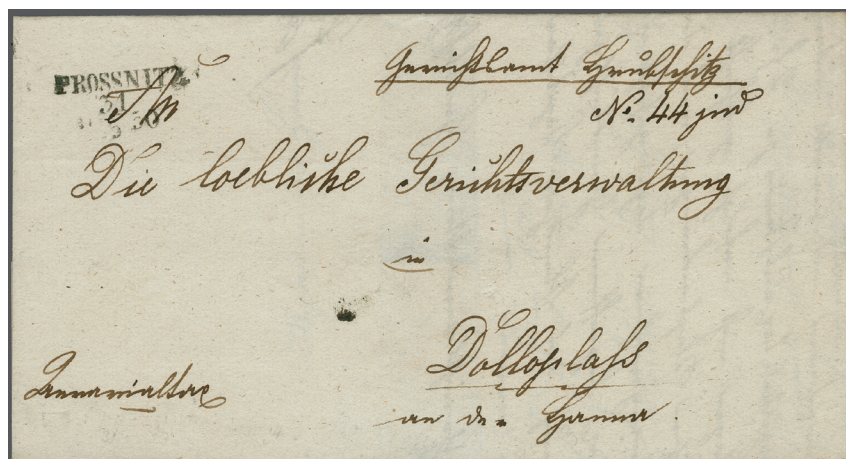 PROSSNITZ
31
50
An
Gerichtsamt Hrubschitz
No. 44 jud
Die loebliche Gerichtsverwaltung
in
Dolloplaß
an der Hanna